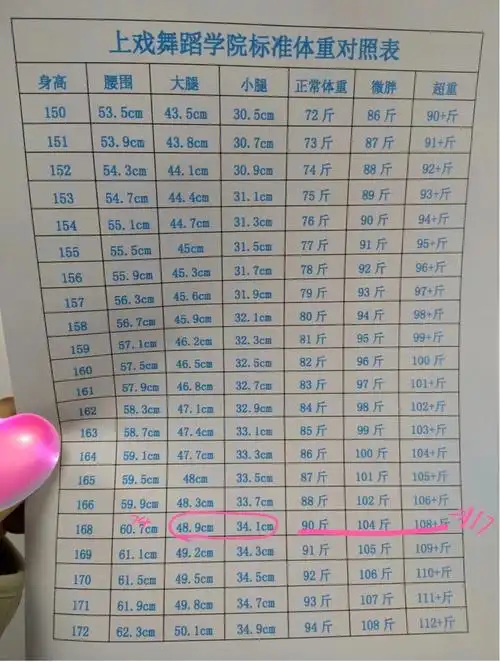 上戏舞蹈学院标准体重对照表
身高 腰围 大腿 小腿 正常体重 微胖 超重
150 53.5cm 43.5cm 30.5cm 72斤 86斤 90+斤
151 53.9cm 43.8cm 30.7cm 73斤 87斤 91+斤
152 54.3cm 44.1cm 30.9cm 74斤 88斤 92+斤
153 54.7cm 44.4cm 31.1cm 75斤 89斤 93+斤
154 55.1cm 44.7cm 31.3cm 76斤 90斤 94+斤
155 55.5cm 45cm 31.5cm 77斤 91斤 95+斤
156 55.9cm 45.3cm 31.7cm 78斤 92斤 96+斤
157 56.3cm 45.6cm 31.9cm 79斤 93斤 97+斤
158 56.7cm 45.9cm 32.1cm 80斤 94斤 98+斤
159 57.1cm 46.2cm 32.3cm 81斤 95斤 99+斤
160 57.5cm 46.5cm 32.5cm 82斤 96斤 100斤
161 57.9cm 46.8cm 32.7cm 83斤 97斤 101+斤
162 58.3cm 47.1cm 32.9cm 84斤 98斤 102+斤
163 58.7cm 47.4cm 33.1cm 85斤 99斤 103+斤
164 59.1cm 47.7cm 33.3cm 86斤 100斤 104+斤
165 59.5cm 48cm 33.5cm 87斤 101斤 105+斤
166 59.9cm 48.3cm 33.7cm 88斤 102斤 106+斤
168 60.7cm 48.9cm 34.1cm 90斤 104斤 108+斤 117
169 61.1cm 49.2cm 34.3cm 91斤 105斤 109+斤
170 61.5cm 49.5cm 34.5cm 92斤 106斤 110+斤
171 61.9cm 49.8cm 34.7cm 93斤 107斤 111+斤
172 62.3cm 50.1cm 34.9cm 94斤 108斤 112+斤